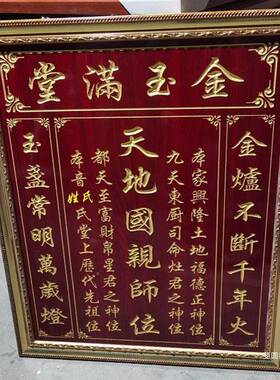 金玉滿堂
金爐不斷千年火
本家興隆土地福德正神位
九天東厨司命灶君之神位
天地國親師位
都天至富財帛星君之神位
本音姓氏氏堂上歷代先祖位
玉盏常明萬歲燈